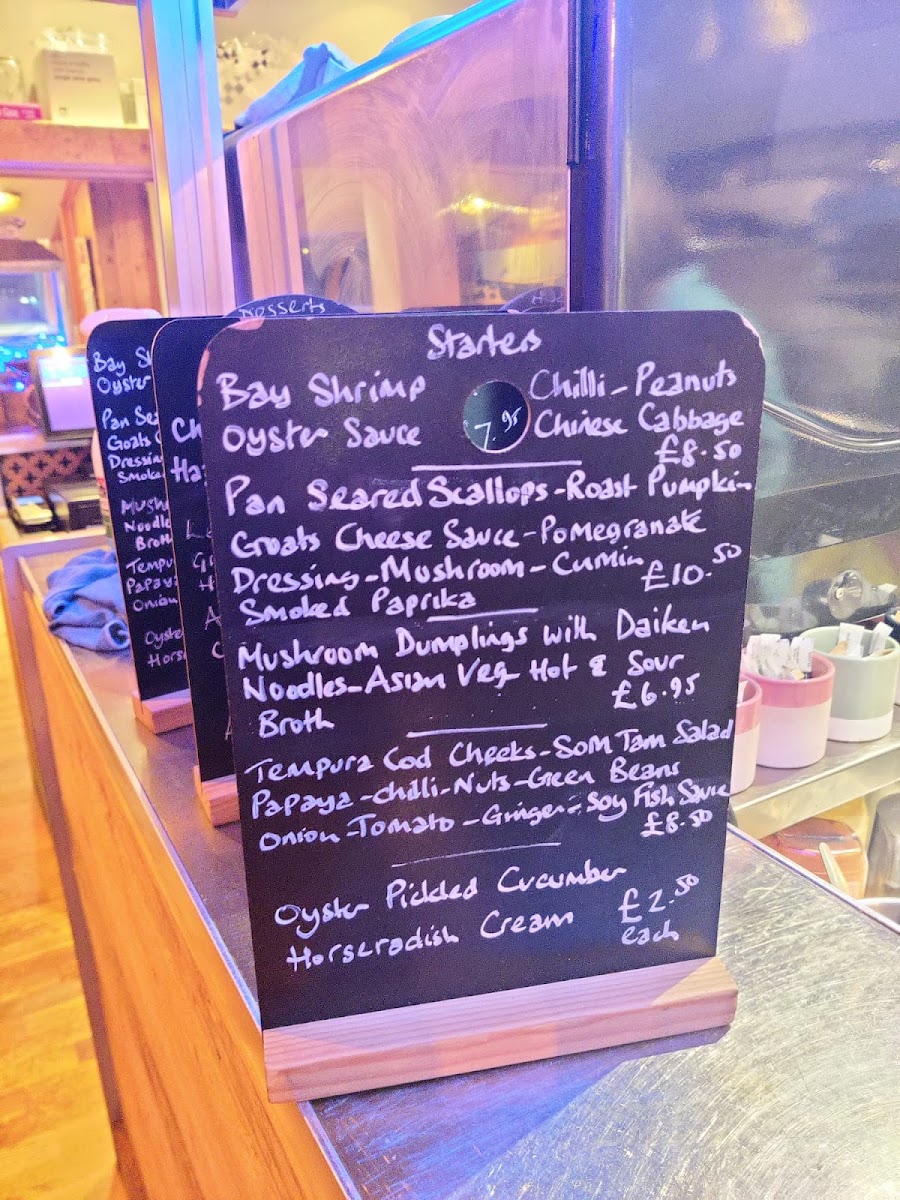 Desserts
Starters
Bay Shrimp Chilli - Peanuts
Oyster Sauce 7.95 Chinese Cabbage
£8.50
Pan Seared Scallops - Roast Pumpkin
Goats Cheese Sauce - Pomegranate
Dressing - Mushroom - Cumin
Smoked Paprika £10.50
Mushroom Dumplings with Daiken
Noodles - Asian Veg Hot & Sour
Broth £6.95
Tempura Cod Cheeks - Som Tam Salad
Papaya - chilli - Nuts - Green Beans
Onion - Tomato - Ginger - Soy Fish Sauce
£8.50
Oyster Pickled Cucumber
Horseradish Cream £2.50
each
Bay Sh
Oyster
Pan Sea
Goats
Dressin
Smoke
Mush
Noodle
Brot
Tempu
Papay
Onion
Oyste
Horse